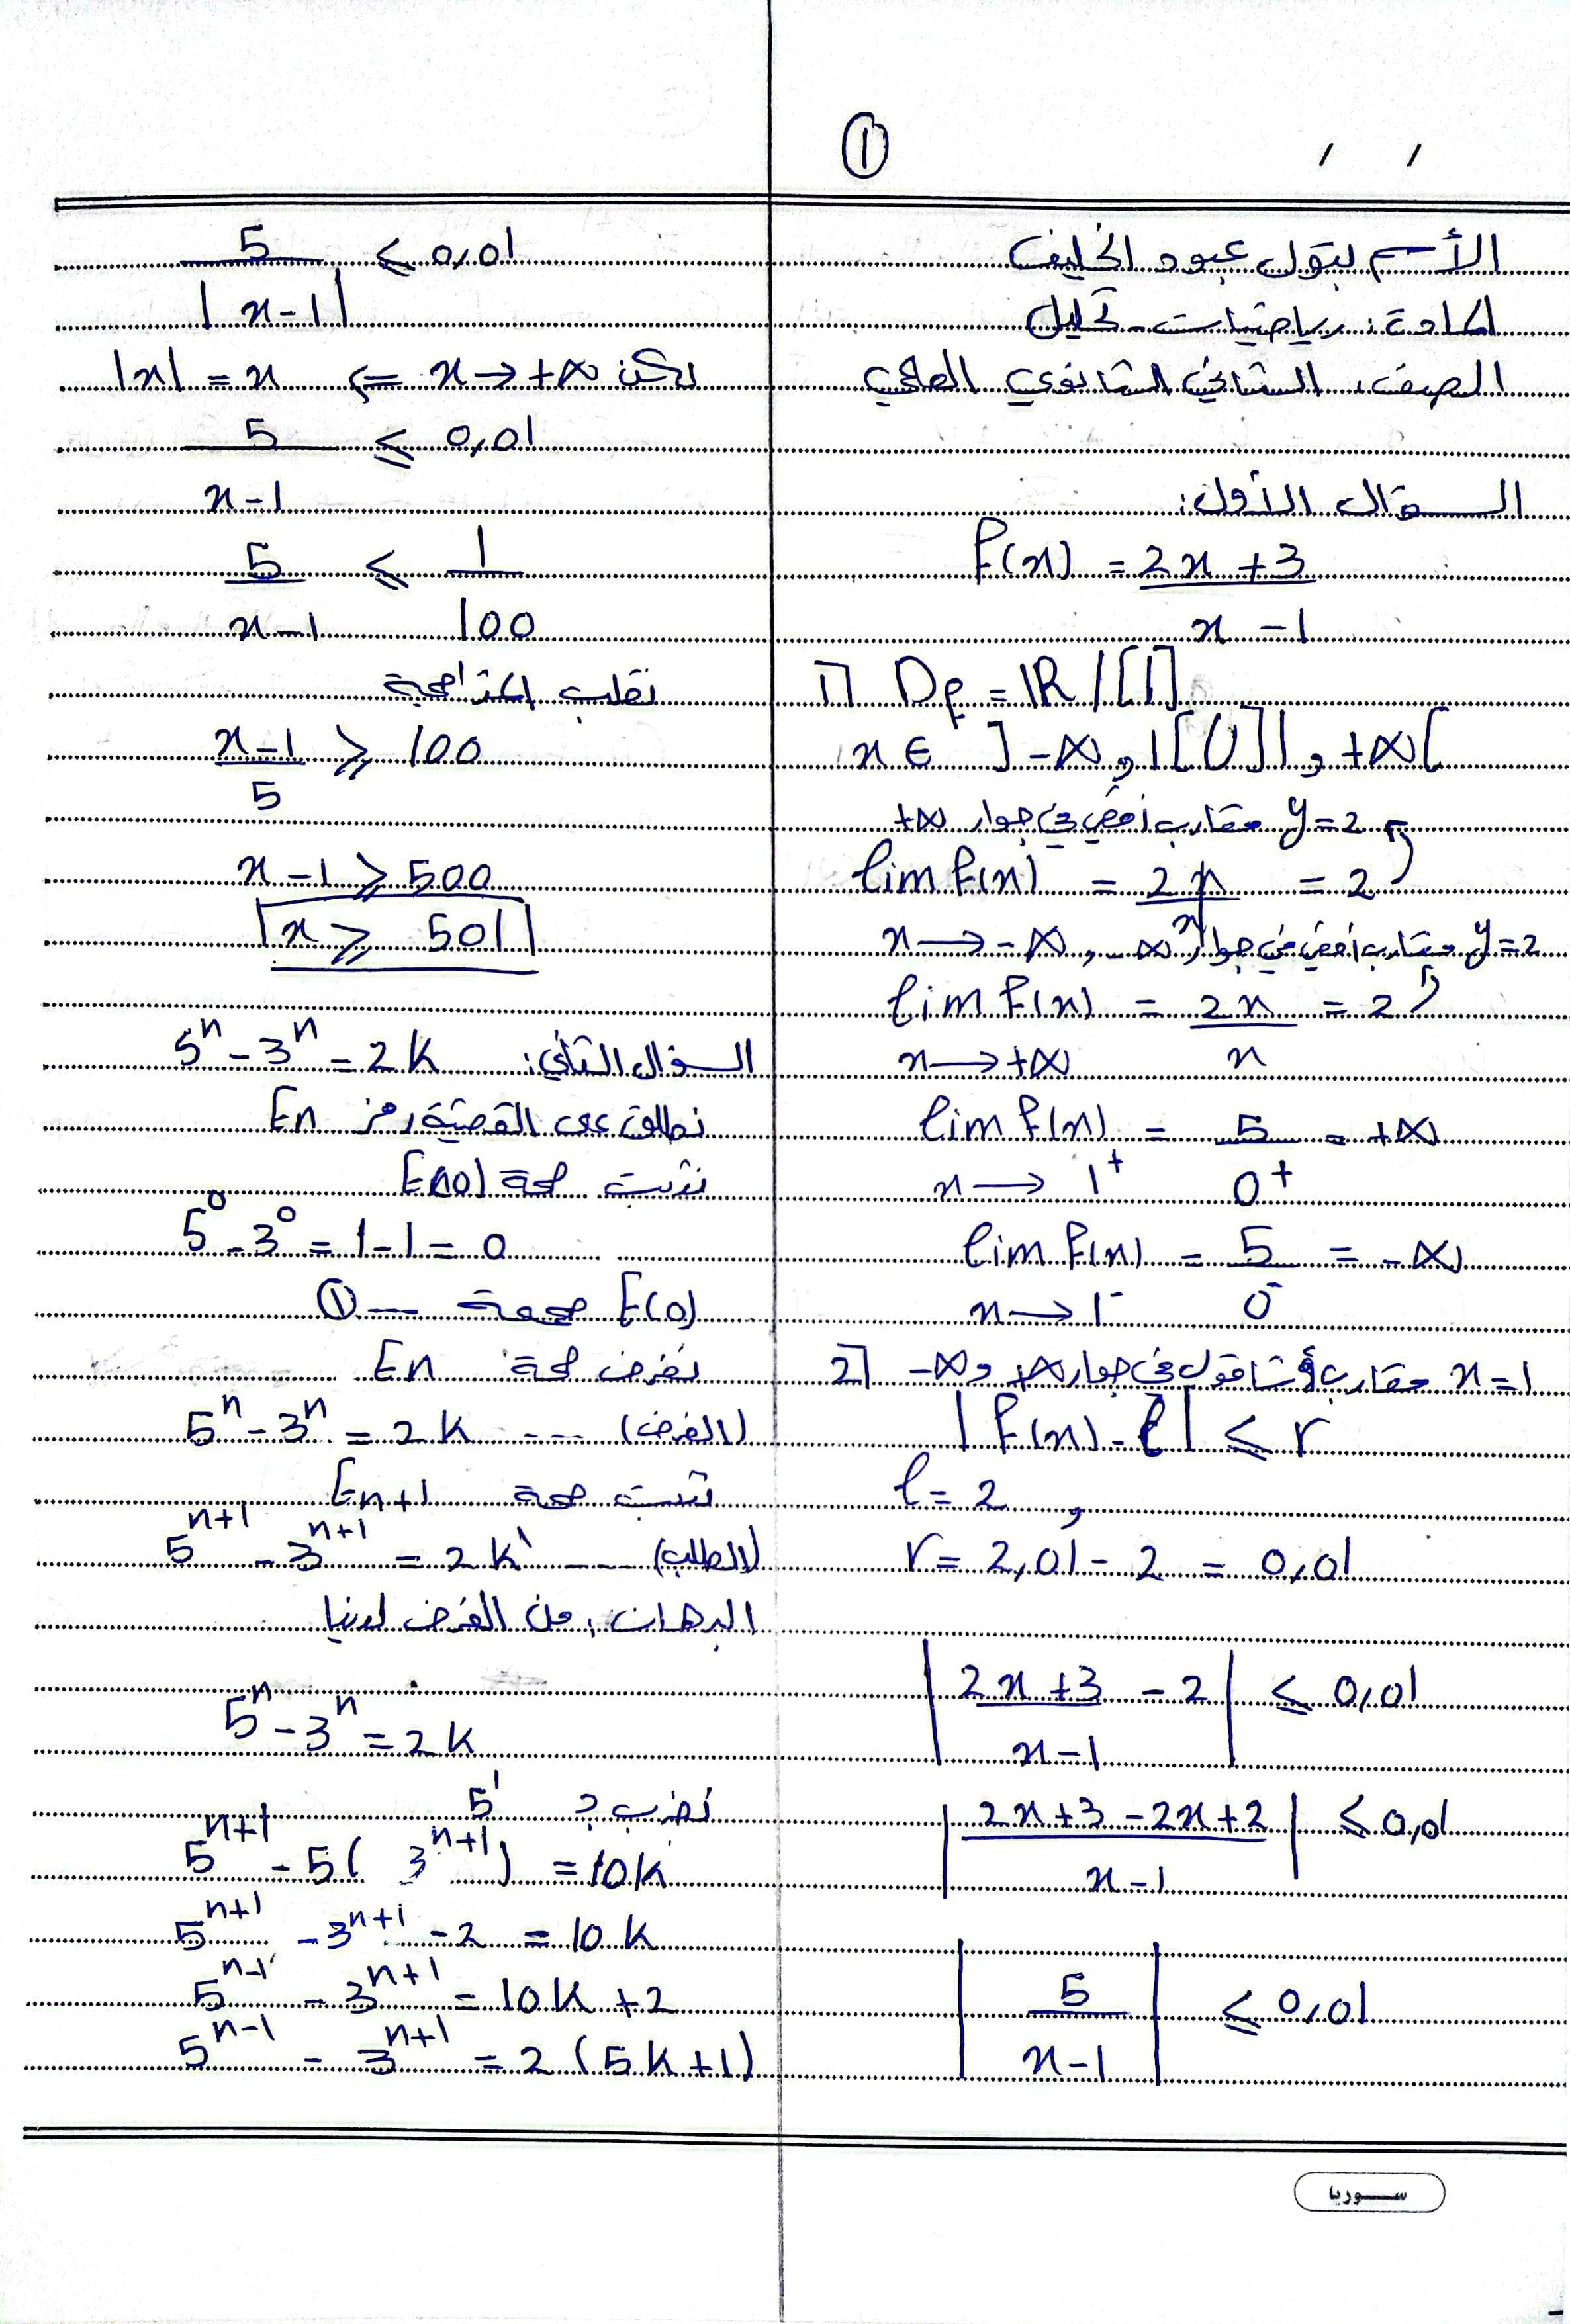 ①
/ /
الأسم بتول عبود الخليف
المادة: رياضيات تحليل
الصف: الثاني الثانوي العلمي
السؤال الأول:
f(x) = 2x + 3
x - 1
1] Df = IR / [1]
x ∈ ]-∞, 1[ U ]1, +∞[
y = 2 مقارب أفقي في جوار +∞
lim f(x) = 2x = 2
x → -∞ x
y = 2 مقارب أفقي في جوار -∞
lim f(x) = 2x = 2
x → +∞ x
lim f(x) = 5 = +∞
x → 1⁺ 0⁺
lim f(x) = 5 = -∞
x → 1⁻ 0⁻
2] x = 1 مقارب شاقولي في جوار +∞ و -∞
| f(x) - l | < r
l = 2 ,
r = 2,01 - 2 = 0,01
| 2x + 3 - 2 | ≤ 0,01
x - 1
| 2x + 3 - 2x + 2 | ≤ 0,01
x - 1
| 5 | ≤ 0,01
x - 1
5 ≤ 0,01
| x - 1 |
لكن x → +∞ ⇐ |x| = x
5 ≤ 0,01
x - 1
5 ≤ 1
x - 1 100
نقلب المتراجحة
x - 1 ≥ 100
5
x - 1 ≥ 500
x ≥ 501
السؤال الثاني: 5ⁿ - 3ⁿ = 2k
نطلق على القضية رمز En
نثبت صحة E(0)
5⁰ - 3⁰ = 1 - 1 = 0
E(0) صحيحة --- ①
نفرض صحة En
5ⁿ - 3ⁿ = 2k --- (الفرض)
نثبت صحة En+1
5ⁿ⁺¹ - 3ⁿ⁺¹ = 2k' --- (الطلب)
البرهان: من الفرض لدينا
5ⁿ - 3ⁿ = 2k
نضرب بـ 5¹
5ⁿ⁺¹ - 5( 3ⁿ⁺¹ ) = 10k
5ⁿ⁺¹ - 3ⁿ⁺¹ - 2 = 10k
5ⁿ⁻¹ - 3ⁿ⁺¹ = 10k + 2
5ⁿ⁻¹ - 3ⁿ⁺¹ = 2 (5k + 1)
سوريا